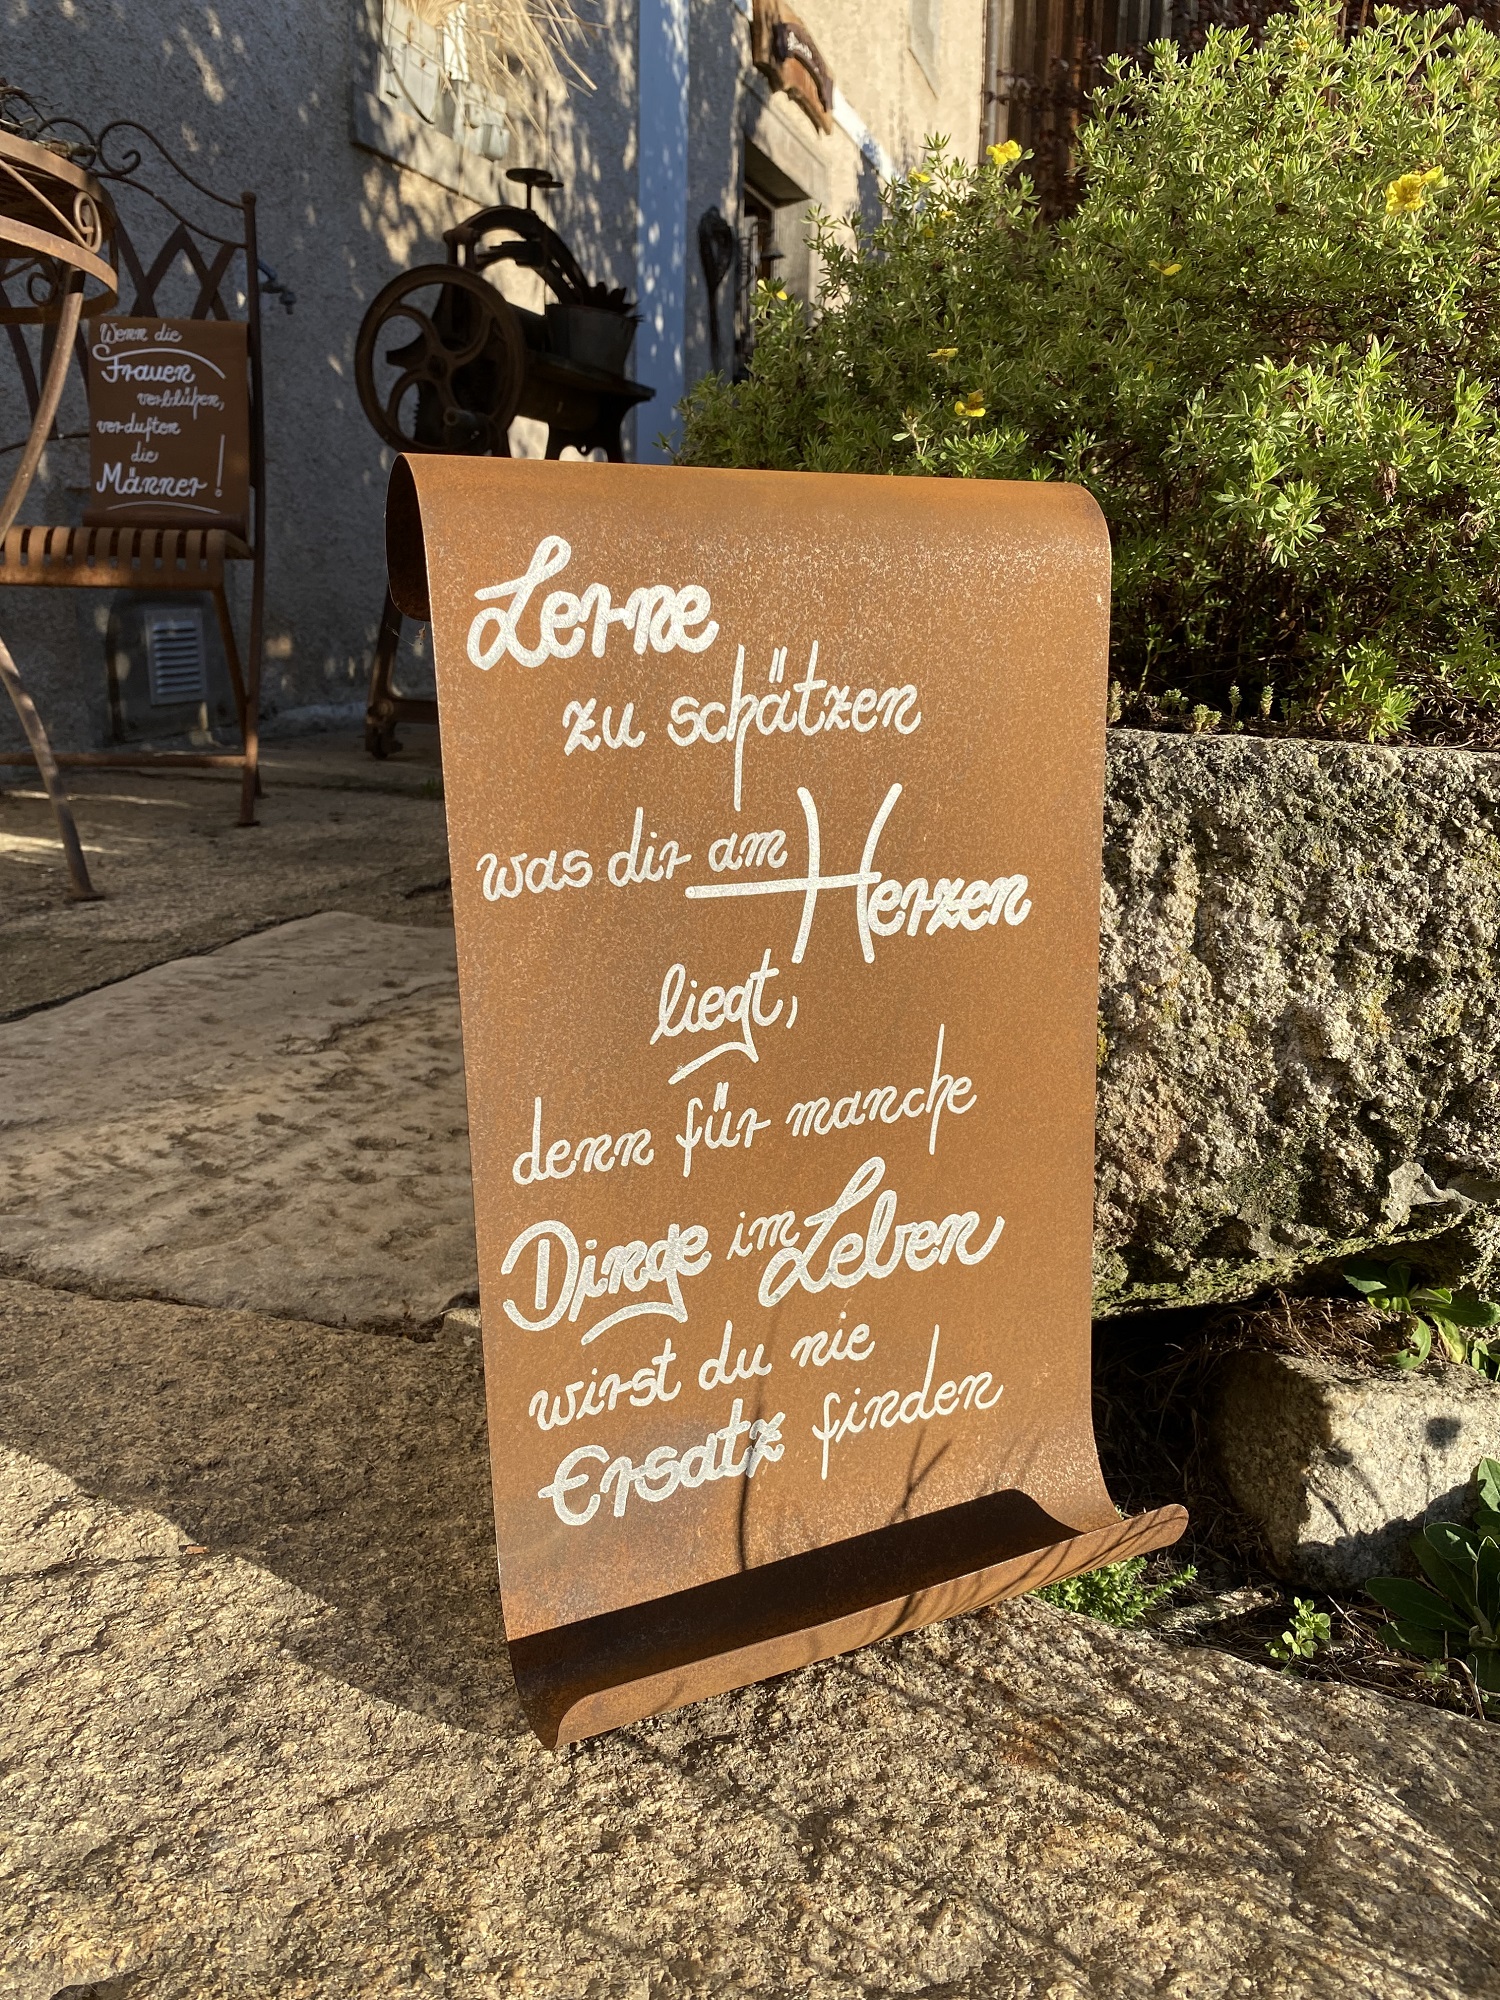 Wenn die
Frauen
verblühen,
verduften
die
Männer!
Lerne
zu schätzen
was dir am Herzen
liegt,
denn für manche
Dinge im Leben
wirst du nie
Ersatz finden